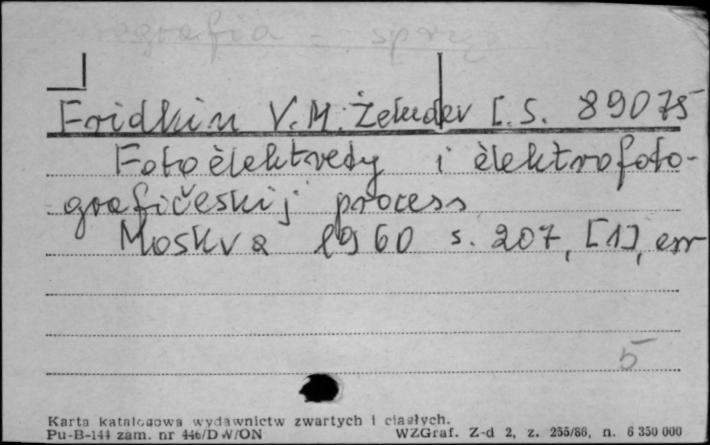 Fridkin V.M. Żeludev I. S. 89075
Fotoèlektrety i èlektrofoto-
grafičeskij process
Moskva 1960 s. 207, [1], err
5
Karta katalogowa wydawnictw zwartych i ciągłych.
Pu-B-144 zam. nr 446/DW/ON WZGraf. Z-d 2, z. 255/86, n. 6 350 000